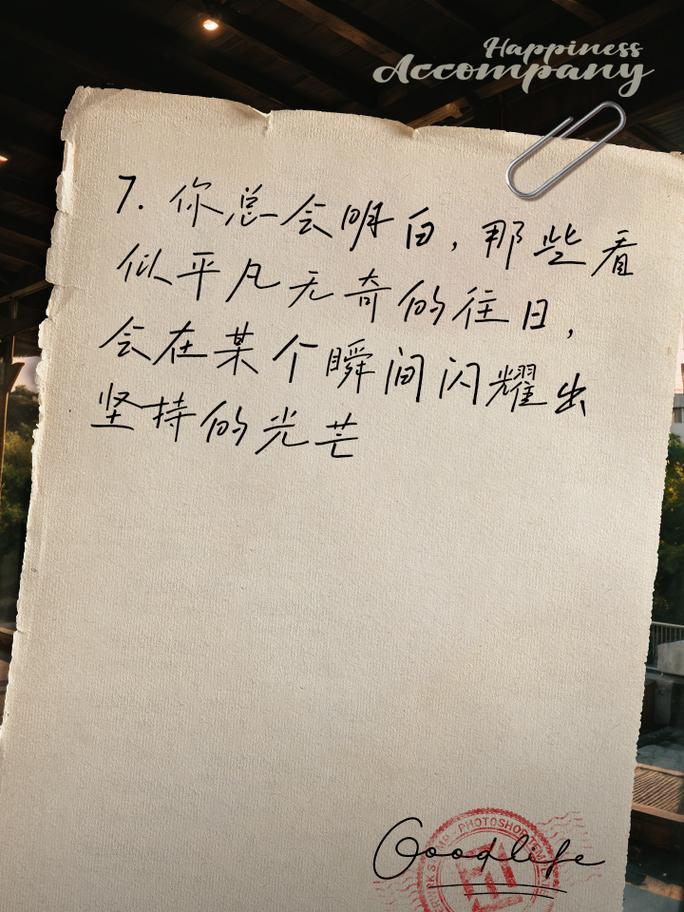 Happiness
Accompany
7. 你总会明白，那些看
似平凡无奇的往日，
会在某个瞬间闪耀出
坚持的光芒
PHOTOSHOP
Goodlife